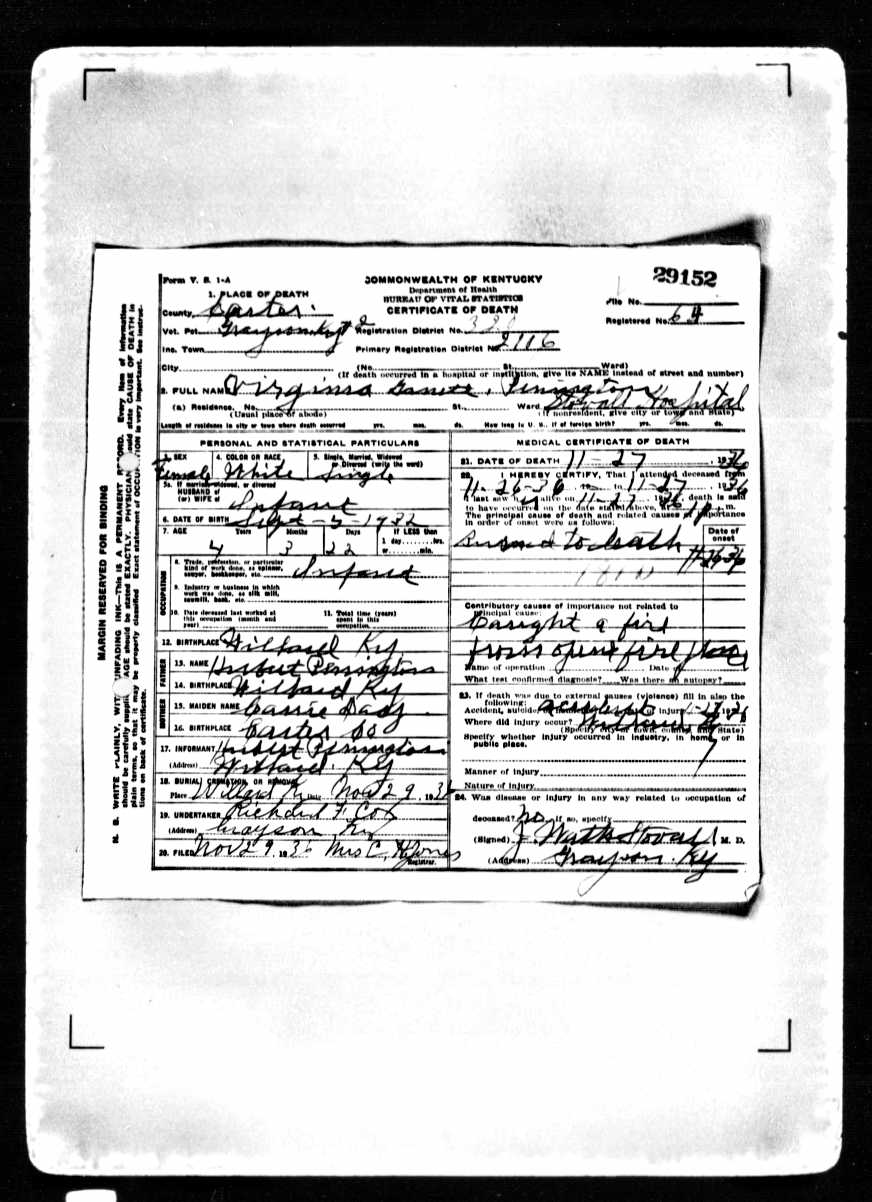 Form V. S. 1-A
COMMONWEALTH OF KENTUCKY
29152
1. PLACE OF DEATH
Department of Health
BUREAU OF VITAL STATISTICS
File No.
County Carter
CERTIFICATE OF DEATH
Registered No. 64
Vot. Pct. Grayson Ky # 2 Registration District No.
Inc. Town Primary Registration District No. 2116
City (No. St. Ward)
(If death occurred in a hospital or institution, give its NAME instead of street and number)
2. FULL NAME Virginia Pennington
(a) Residence. No. St. Ward Stovall Hospital
(Usual place of abode) (If nonresident, give city or town and State)
Length of residence in city or town where death occurred yrs. mos. ds. How long in U. S., if of foreign birth? yrs. mos. ds.
PERSONAL AND STATISTICAL PARTICULARS
3. SEX 4. COLOR OR RACE 5. Single, Married, Widowed
or Divorced (write the word)
Female White Single
5a. If married, widowed, or divorced
HUSBAND of
(or) WIFE of Infant
6. DATE OF BIRTH Sept-5-1932
7. AGE Years Months Days If LESS than
1 day, hrs.
4 3 22 or min.
OCCUPATION
8. Trade, profession, or particular
kind of work done, as spinner,
sawyer, bookkeeper, etc. Infant
9. Industry or business in which
work was done, as silk mill,
sawmill, bank, etc.
10. Date deceased last worked at
this occupation (month and
year)
11. Total time (years)
spent in this
occupation
12. BIRTHPLACE Willard Ky
FATHER
13. NAME Hurbert Pennington
14. BIRTHPLACE Willard Ky
MOTHER
15. MAIDEN NAME Carrie
16. BIRTHPLACE Carter Co
17. INFORMANT Hurbert Pennington
(Address) Willard Ky
18. BURIAL, CREMATION, OR REMOVAL
Place Willard Ky Date Nov 29, 1936
19. UNDERTAKER Richard F. Cox
(Address) Grayson Ky
20. FILED Nov 29 1936 Mrs C. H Jones
Registrar.
MEDICAL CERTIFICATE OF DEATH
21. DATE OF DEATH 11-27, 1936
22. I HEREBY CERTIFY, That I attended deceased from
11-26-36 to 11-27, 1936
I last saw h alive on 11-27, 1936 death is said
to have occurred on the date stated above, at 1 P. m.
The principal cause of death and related causes of importance
in order of onset were as follows:
Date of
onset
Burned to death 11-26-36
Contributory causes of importance not related to
principal cause:
Caught a fire
from open fire place
Name of operation Date of
What test confirmed diagnosis? Was there an autopsy?
23. If death was due to external causes (violence) fill in also the
following:
Accident, suicide, or homicide? accident Date of injury 1936
Where did injury occur? Willard Ky
(Specify city or town, county, and State)
Specify whether injury occurred in industry, in home, or in
public place.
Manner of injury
Nature of injury
24. Was disease or injury in any way related to occupation of
deceased? No If so, specify
(Signed) J. Watts Stovall, M. D.
(Address) Grayson Ky
MARGIN RESERVED FOR BINDING
N. B. WRITE PLAINLY, WITH UNFADING INK—This is a PERMANENT RECORD. Every item of information
should be carefully supplied. AGE should be stated EXACTLY. PHYSICIAN should state CAUSE OF DEATH in
plain terms, so that it may be properly classified. Exact statement of OCCUPATION is very important. See instruc-
tions on back of certificate.